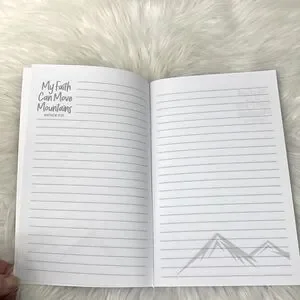 My Faith
Can Move
Mountains